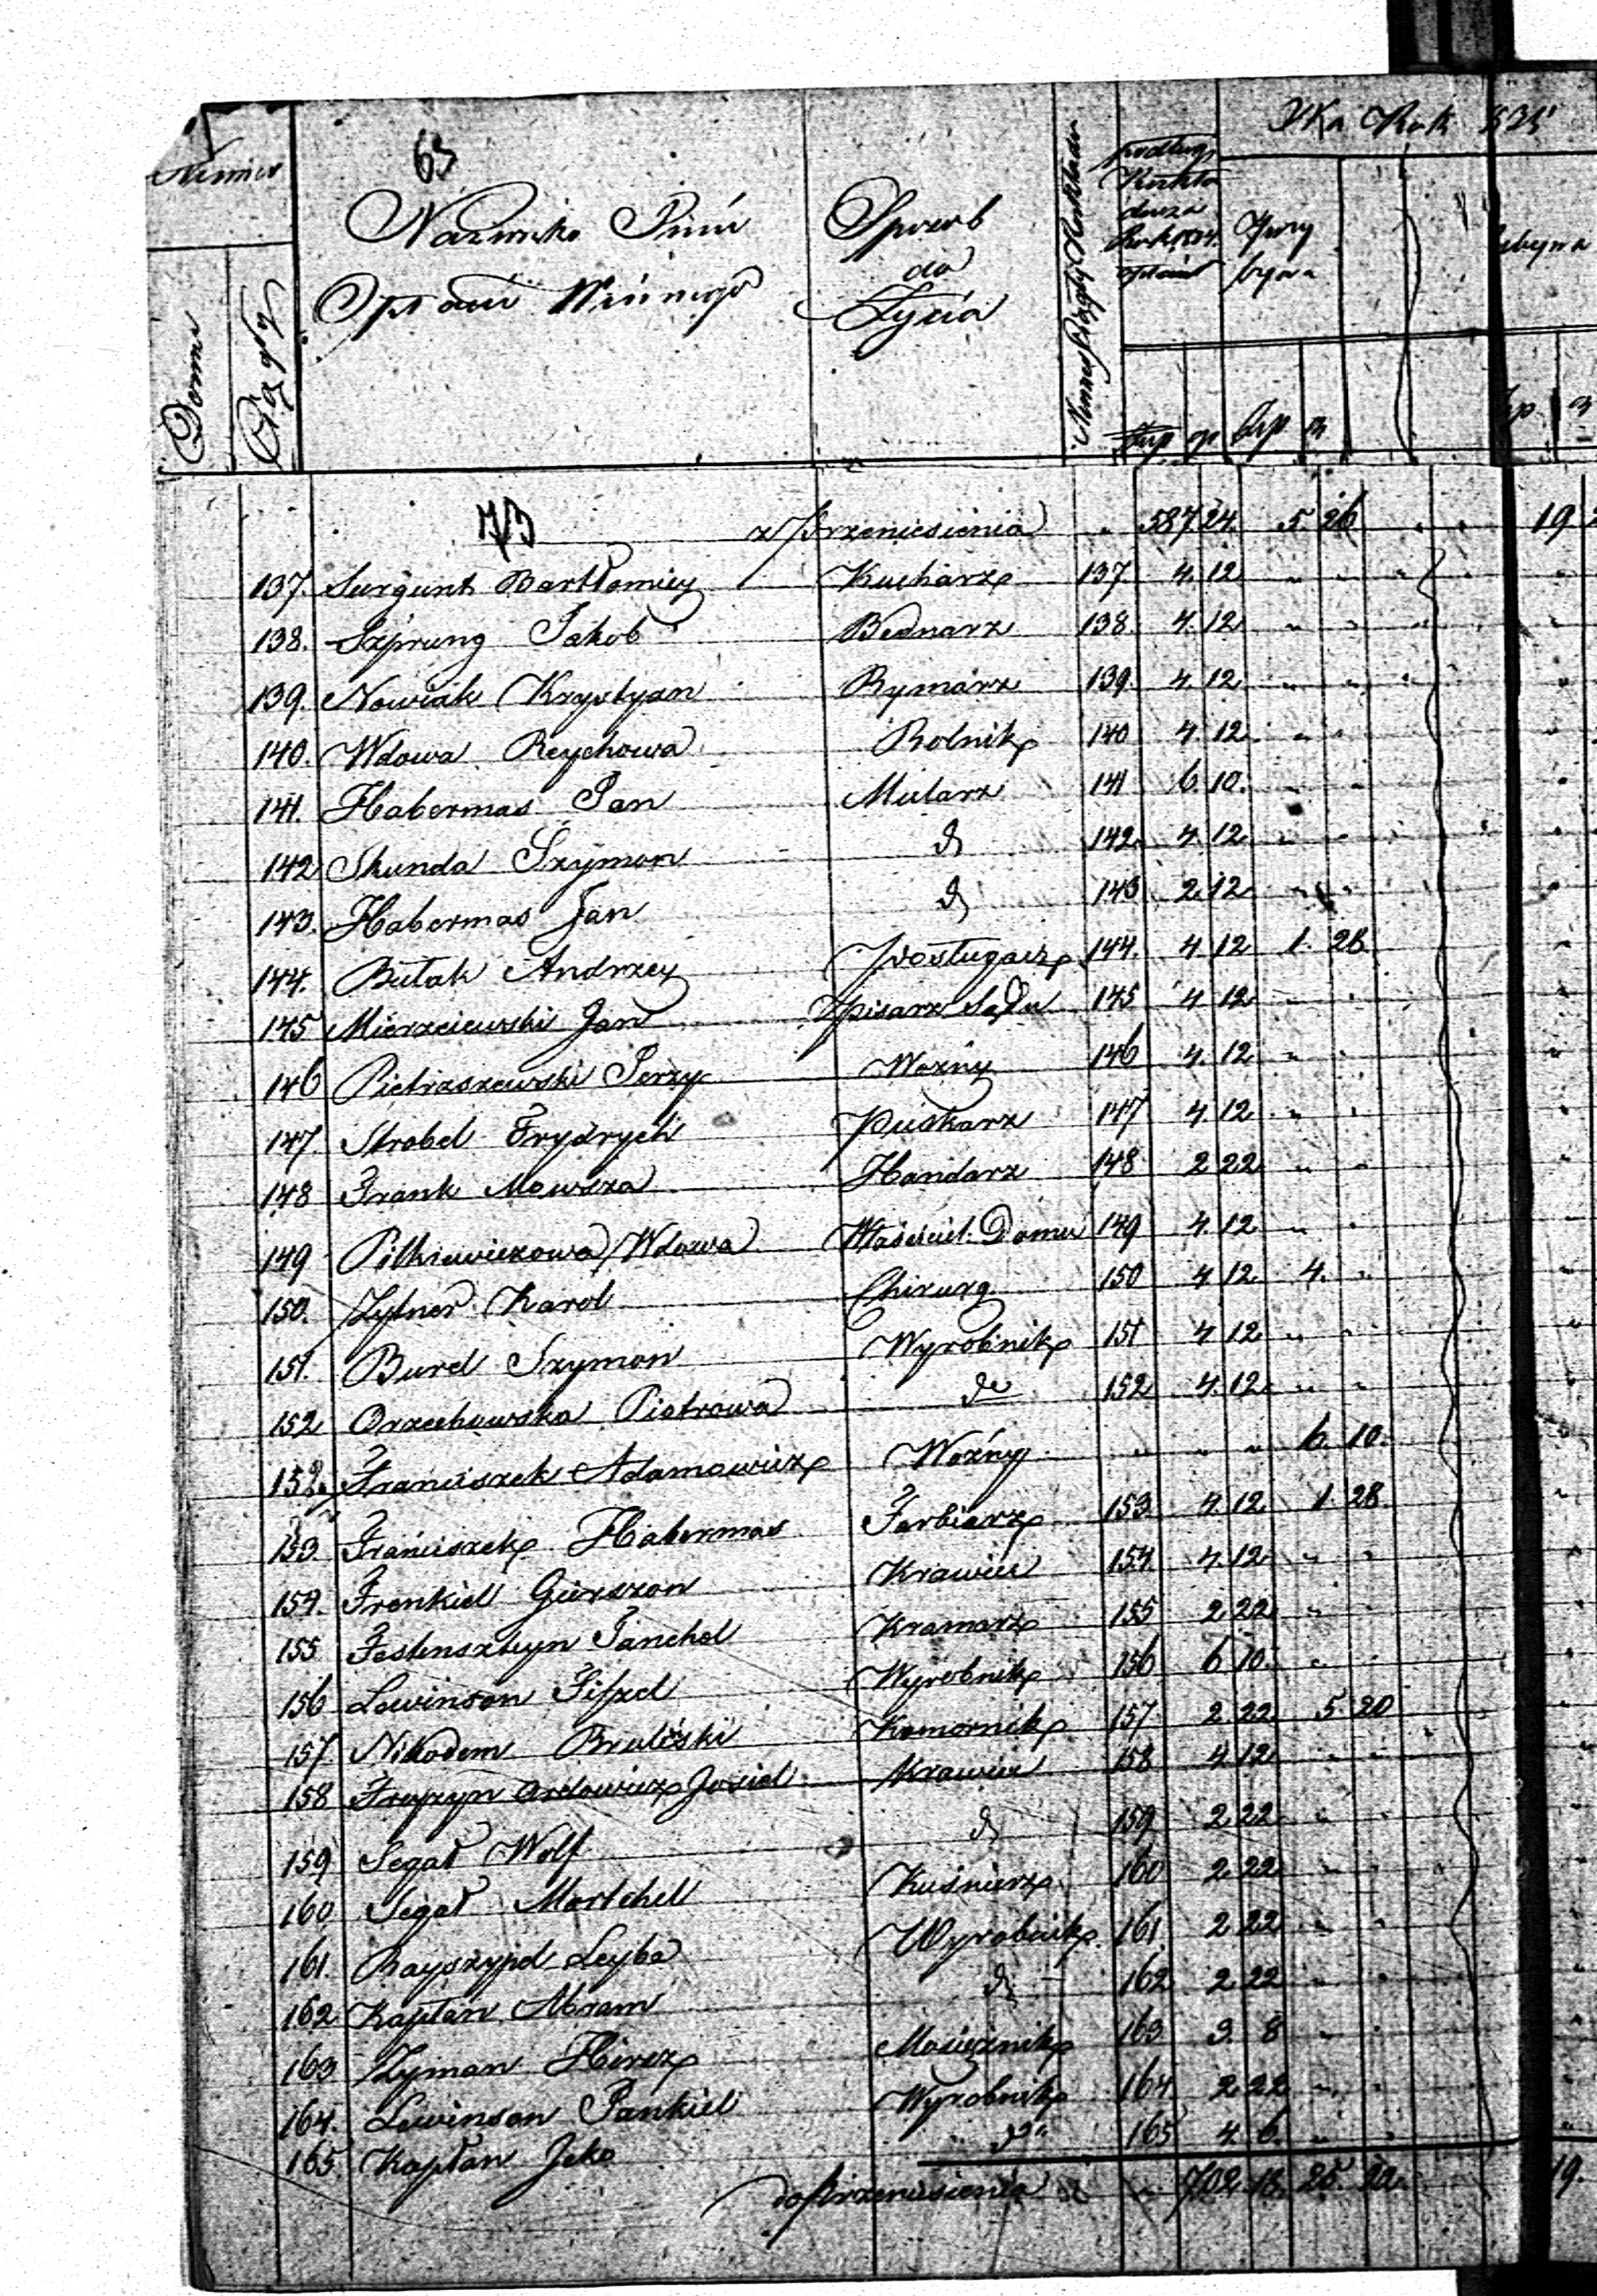 Numer
Domu
63
Nazwisko i Imie
Opłacaiącego
Sposób
do
Życia
Na Rok 1835
podług
Rozkła
du za
Rok 1834
Przy
bywa
Ubywa
złp gr złp gr
złp
73 z Przeniesienia " 587 24 5 26 " " 19
137. Surgunt Bartłomiey Kucharz 137 4. 12 " "
138. Szprung Jakob Bednarz 138 4. 12 " "
139. Nowiak Krystyan Rymarz 139. 4. 12 " "
140. Wdowa Reychowa Rolnik 140 4. 12 " "
141. Habermas Jan Mularz 141 6. 10. " "
142 Skunda Szymon d 142 4. 12 " "
143. Habermas Jan d 143 2. 12 " "
144. Butak Andrzey Posługacz 144. 4. 12 1. 28
145 Mierzeiewski Jan Pisarz Sądu 145 4 12 " "
146 Pietraszewski Jerzy Woźny 146 4. 12 " "
147. Strobel Frydrych Puszkarz 147 4. 12 " "
148 Frank Mowsza Handarz 148 2 22 " "
149 Pitkiewiczowa Wdowa Właściciel. Domu 149 4. 12 " "
150. Zytner Karol Chirurg 150 4 12 4. "
151. Burel Szymon Wyrobnik 151 4 12 " "
152 Orzechowska Piotrowa do 152 4. 12 " "
152a Franciszek Adamowicz Woźny " " " 6. 10.
153. Franciszek Habermas Farbiarz 153 4. 12 1. 28
154. Frenkiel Gierszon Krawiec 154. 4. 12 " "
155 Festenszteyn Janchel Kramarz 155 2 22 " "
156 Lewinson Fiszel Wyrobnik 156 6 10. " "
157 Nikodem Komornik 157 2. 22 5 20
158 Josiel Krawiec 158 4 12 " "
159 Segał Wolf d 159 2 22 " "
160 Segał Mortchell Kuśnierz 160 2. 22 " "
161. Rayszypel Leyba Wyrobnik 161. 2 22 " "
162 Kapłan Abram d 162 2. 22 " "
163 Zyman Hirsz Mosiężnik 163 3. 8 " "
164. Lewinson Jankiel Wyrobnik 164 2 22 " "
165. Kapłan Jcko do 165 4. 6. " "
do Przeniesienia " 702. 18. 25. 22. 19.